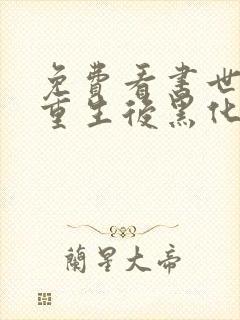 免費看書世
重生後黑化
蘭星大帝